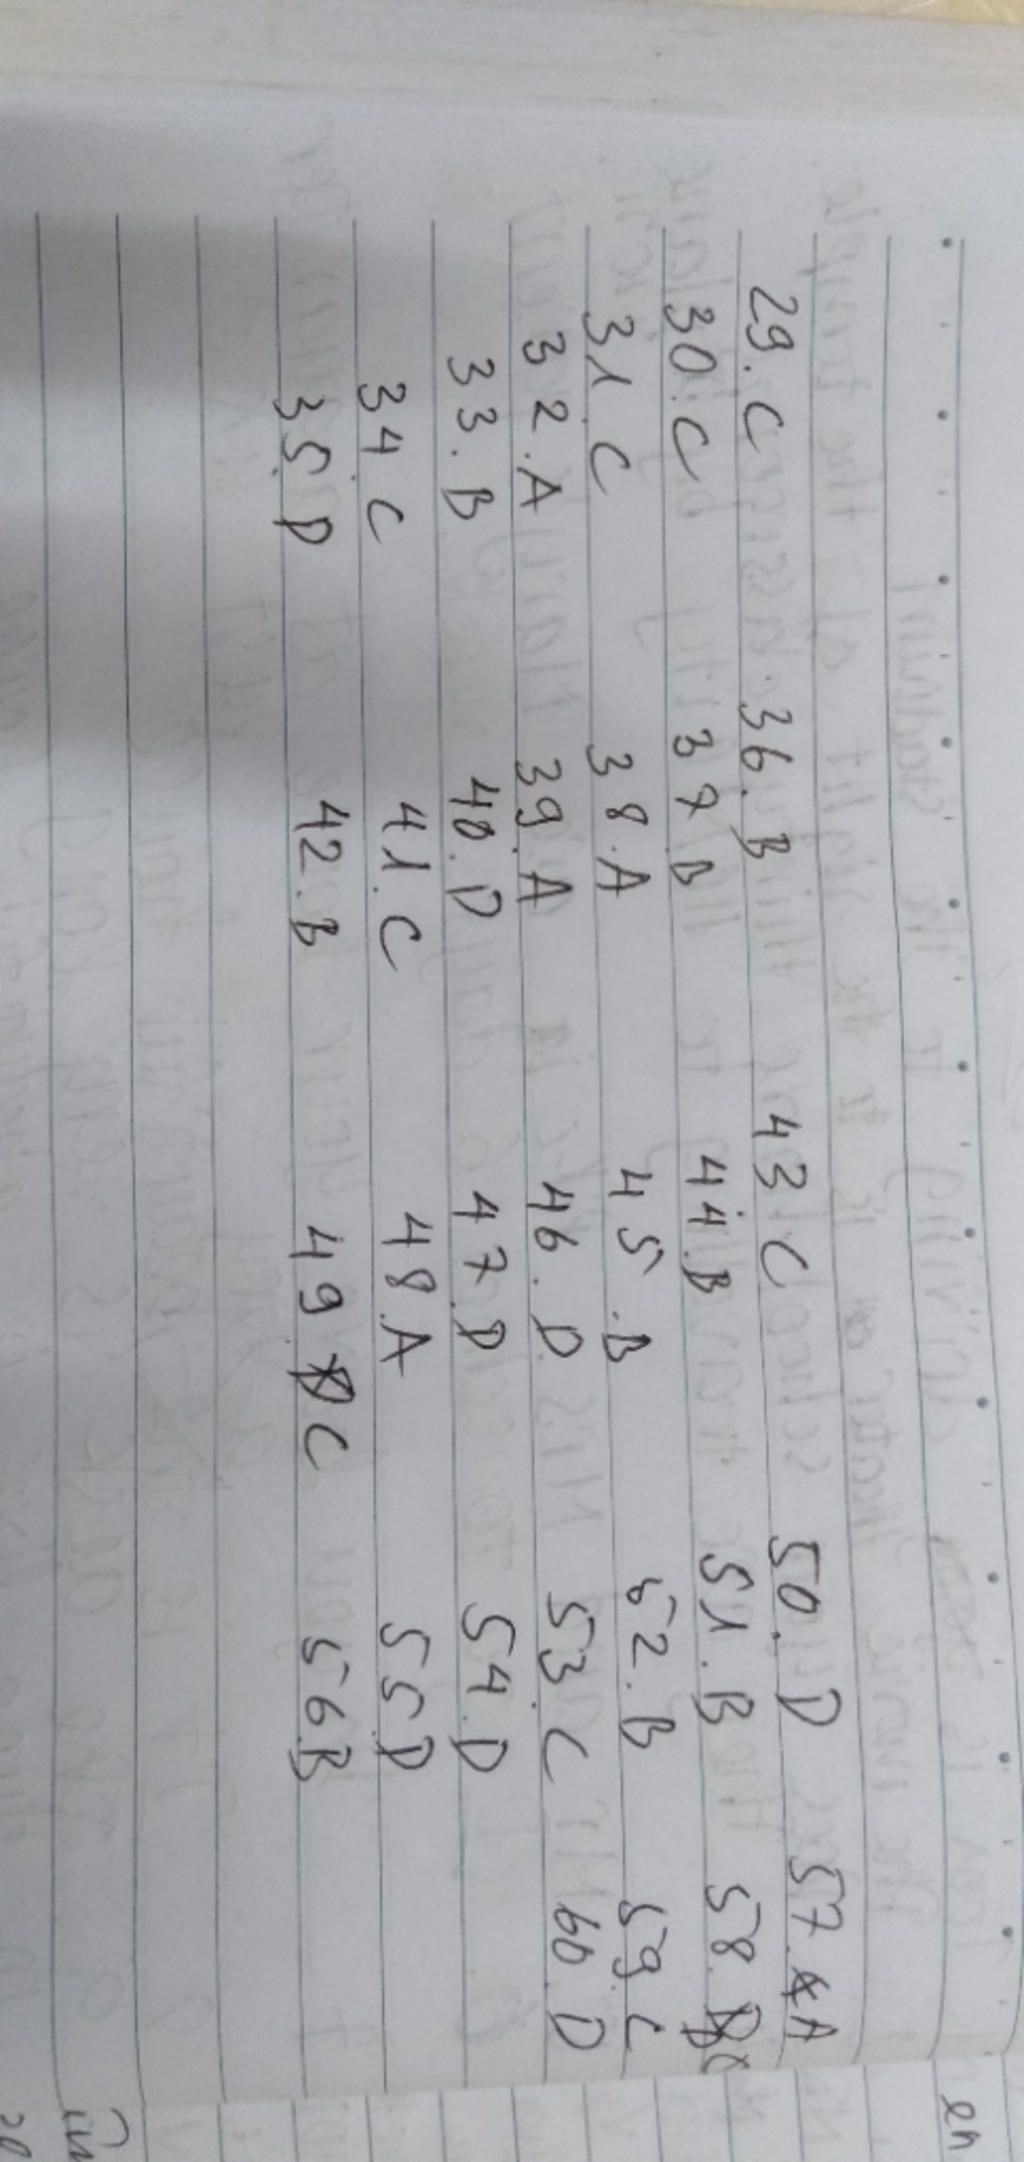 29. C 36. B 43 C 50. D 57. A
30. C 37 B 44. B 51. B 58.
31. C 38. A 45. B 52. B 59 C
32. A 39. A 46. D 53. C 60. D
33. B 40. D 47. D 54. D
34. C 41. C 48. A 55 D
35. D 42. B 49 C 56 B
en